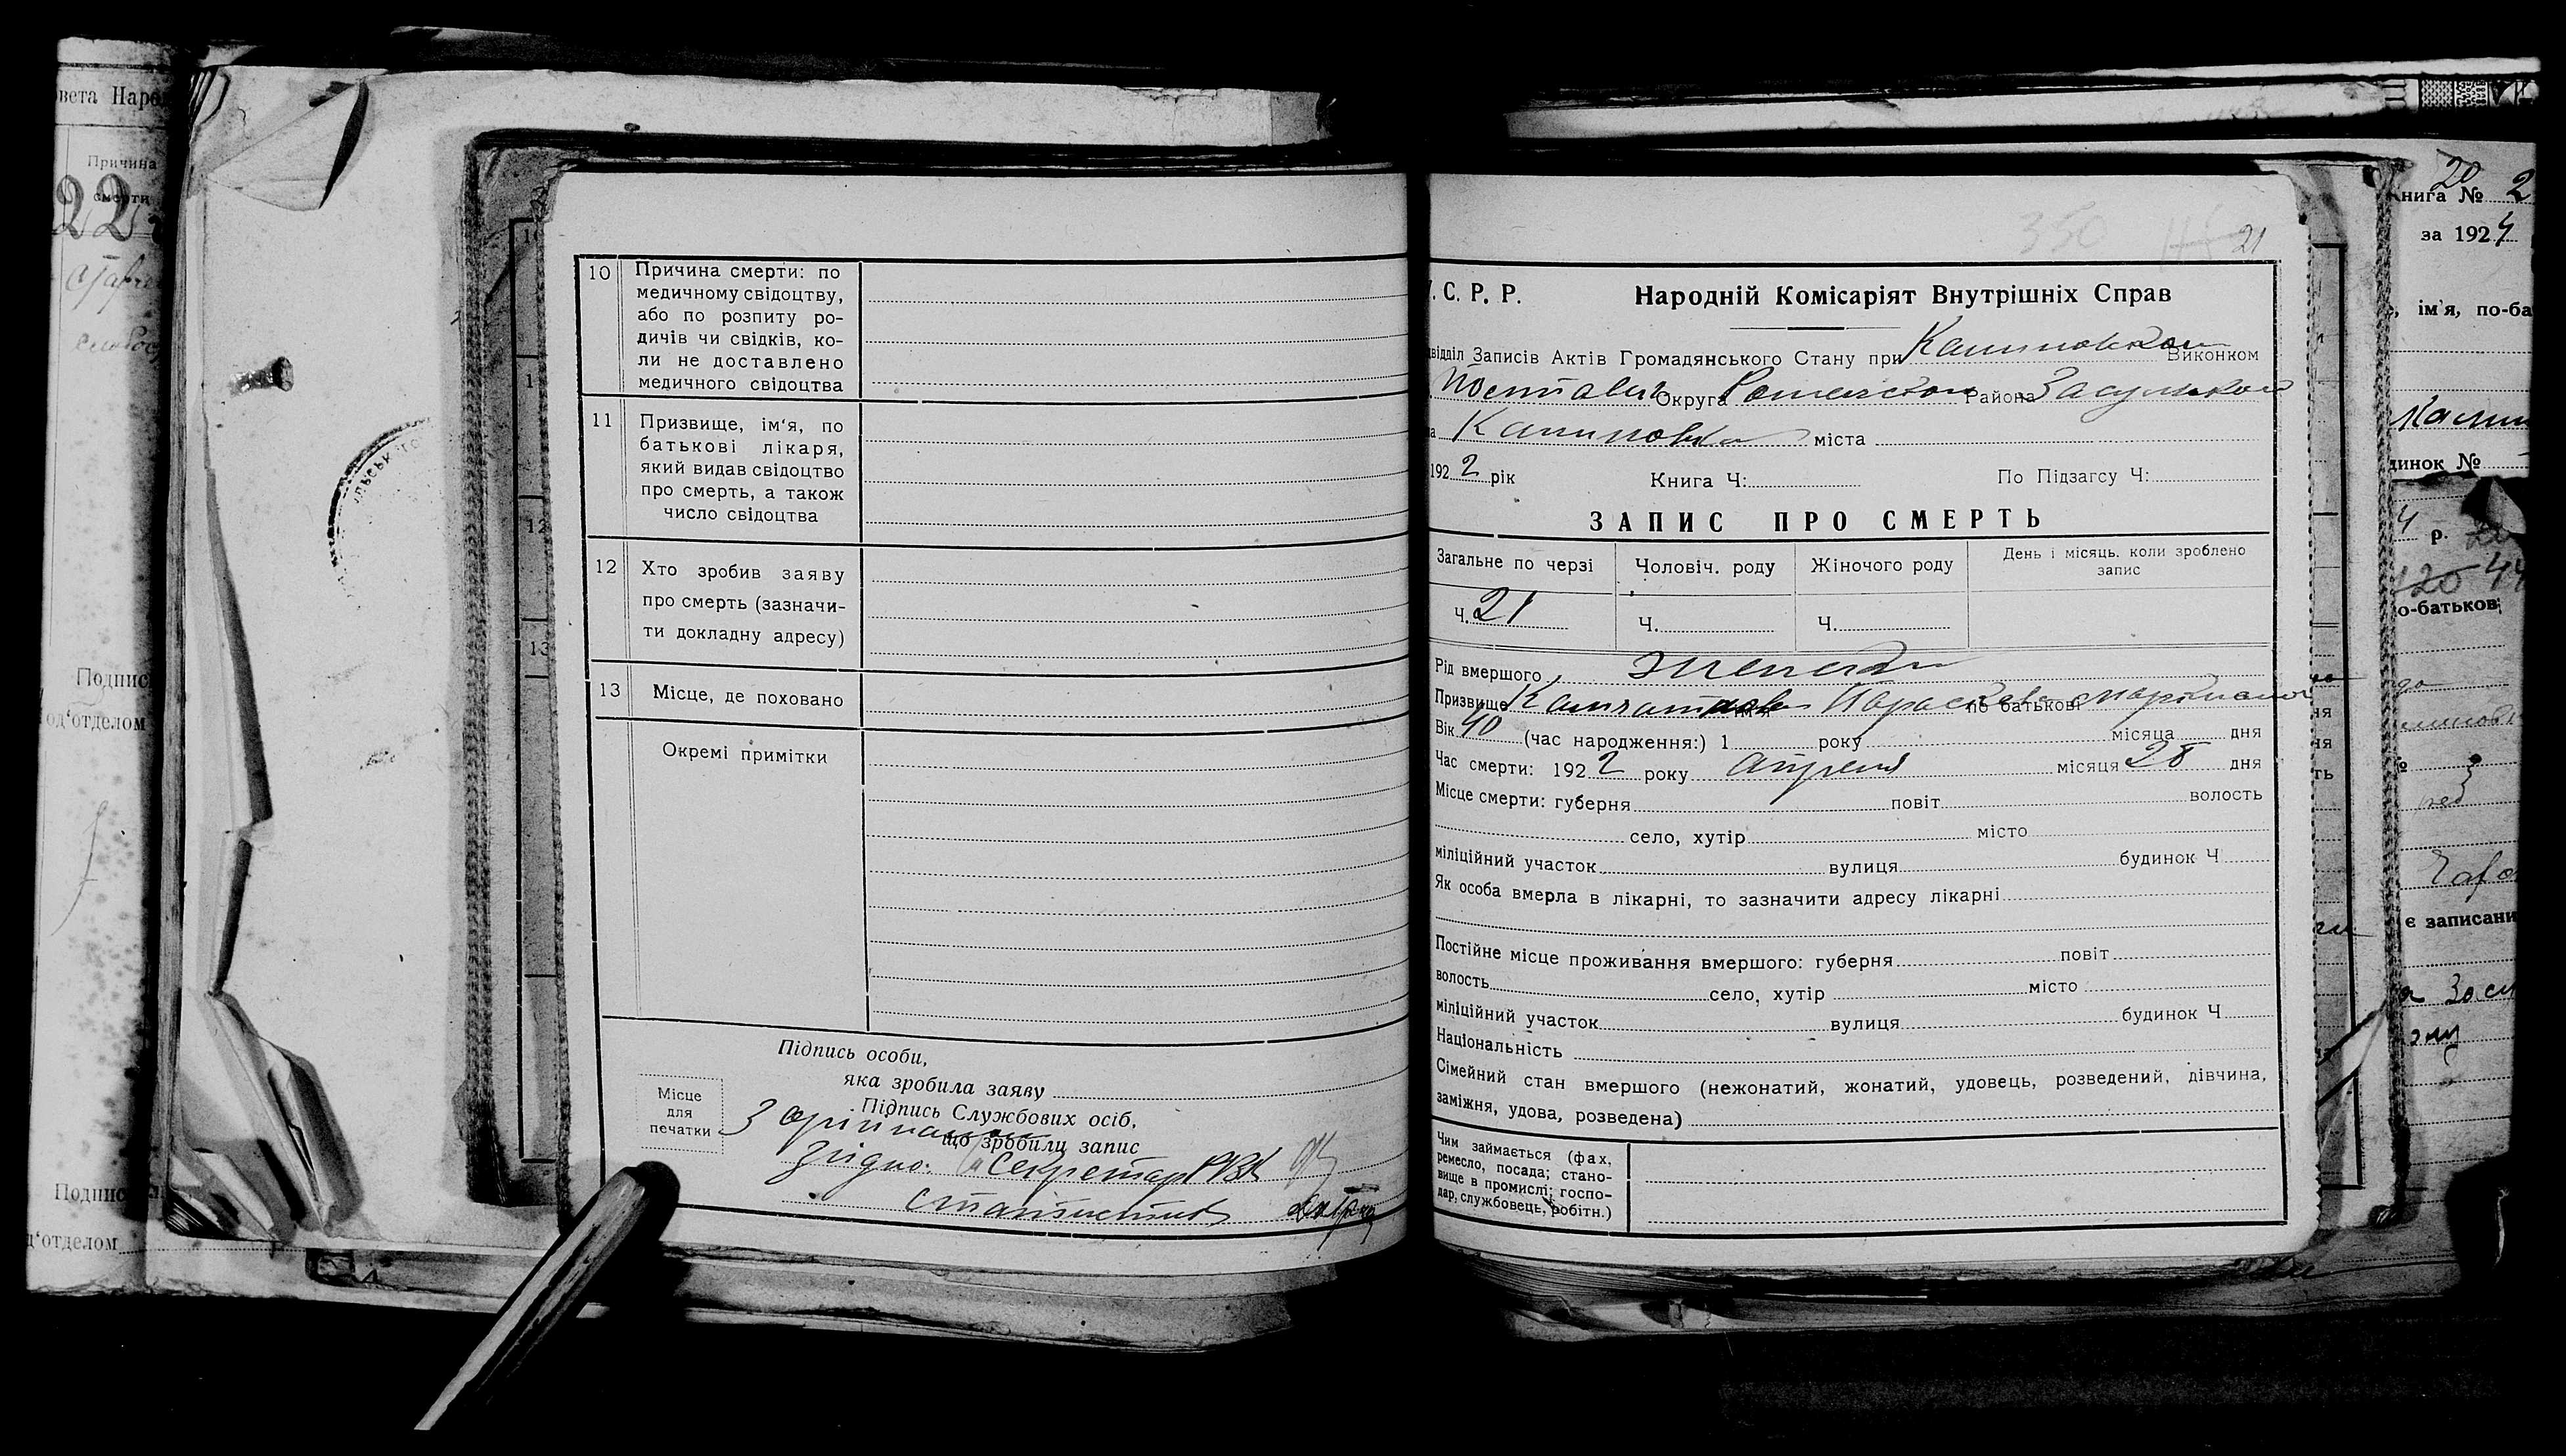 овета Наро
Причина
смерти
22
Подпис
од‘отделом
Подпис
д‘отделом
10
Причина смерти: по
медичному свідоцтву,
або по розпиту ро-
дичів чи свідків, ко-
ли не доставлено
медичного свідоцтва
11
Призвище, ім‘я, по
батькові лікаря,
який видав свідоцтво
про смерть, а також
число свідоцтва
12
Хто зробив заяву
про смерть (зазначи-
ти докладну адресу)
13
Місце, де поховано
Окремі примітки
Підпись особи,
яка зробила заяву
Підпись Службових осіб,
що зробили запис
Місце
для
печатки
З оріиналом
згідно: Секретар РВК
статистик
350
21
У. С. Р. Р. Народній Комісаріят Внутрішніх Справ
відділ Записів Актів Громадянського Стану при Калиновском Виконком
Полтавск Округа Роменском Района Засульском
Калиновка міста
1922 рік Книга Ч: По Підзагсу Ч:
ЗАПИС ПРО СМЕРТЬ
Загальне по черзі Чоловіч. роду Жіночого роду День і місяць, коли зроблено запис
Ч. 21 Ч. Ч.
Рід вмершого женский
Призвище ім‘я Параскева по батькові
Вік 40 (час народження:) 1 року місяца дня
Час смерти: 1922 року апреля місяця 28 дня
Місце смерти: губерня повіт волость
село, хутір місто
міліційний участок вулиця будинок Ч
Як особа вмерла в лікарні, то зазначити адресу лікарні
Постійне місце проживання вмершого: губерня повіт
волость село, хутір місто
міліційний участок вулиця будинок Ч
Національність
Сімейний стан вмершого (нежонатий, жонатий, удовець, розведений, дівчина,
заміжня, удова, розведена)
Чим займається (фах,
ремесло, посада; стано-
вище в промислі; госпо-
дар, службовець, робітн.)
Книга № 2
20
за 1924
ім‘я, по-ба
Калин
динок №
4 р.
120 44
о-батькові
є записани